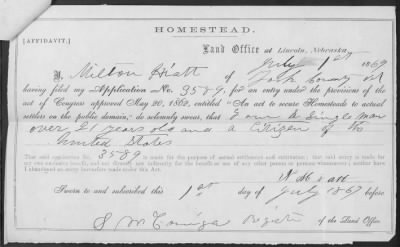 HOMESTEAD.
[AFFIDAVIT.]
Land Office at Lincoln, Nebraska,
July 1st 1869
I, Milton Hiatt of York County N
having filed my Application No. 3589, for an entry under the provisions of the
act of Congress approved May 20, 1862, entitled "An act to secure Homesteads to actual
settlers on the public domain," do solemnly swear, that I am a Single man
over 21 years old and a Citizen of the
United States
That said application No. 3589 is made for the purpose of actual settlement and cultivation; that said entry is made for
my own exclusive benefit, and not directly nor indirectly for the benefit or use of any other person or persons whomsoever; neither have
I abandoned an entry heretofore made under this Act.
M Hiatt
Sworn to and subscribed this 1st day of July 1869 before
S McConiga Register of the Land Office